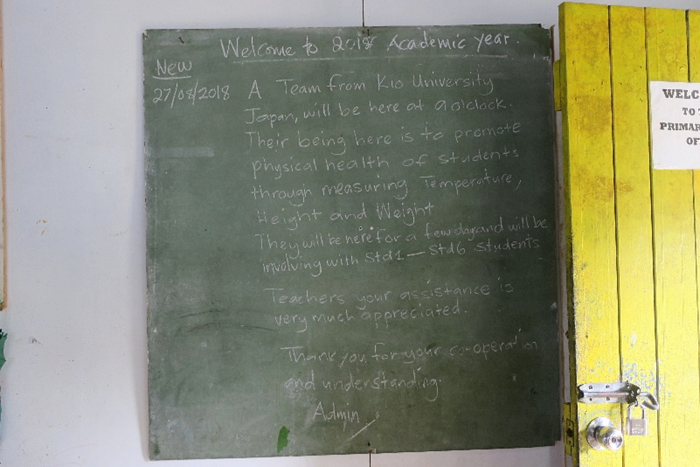 Welcome to 2018 Academic year.
New
27/08/2018 A Team from Kio University
Japan, will be here at 9 o'clock.
Their being here is to promote
physical health of students
through measuring Temperature,
Height and Weight
They will be here for a few days and will be
involving with Std1 — Std6 students
Teachers your assistance is
very much appreciated.
Thank you for your co-operation
and understanding.
Admin
WELC
TO
PRIMAR
OF